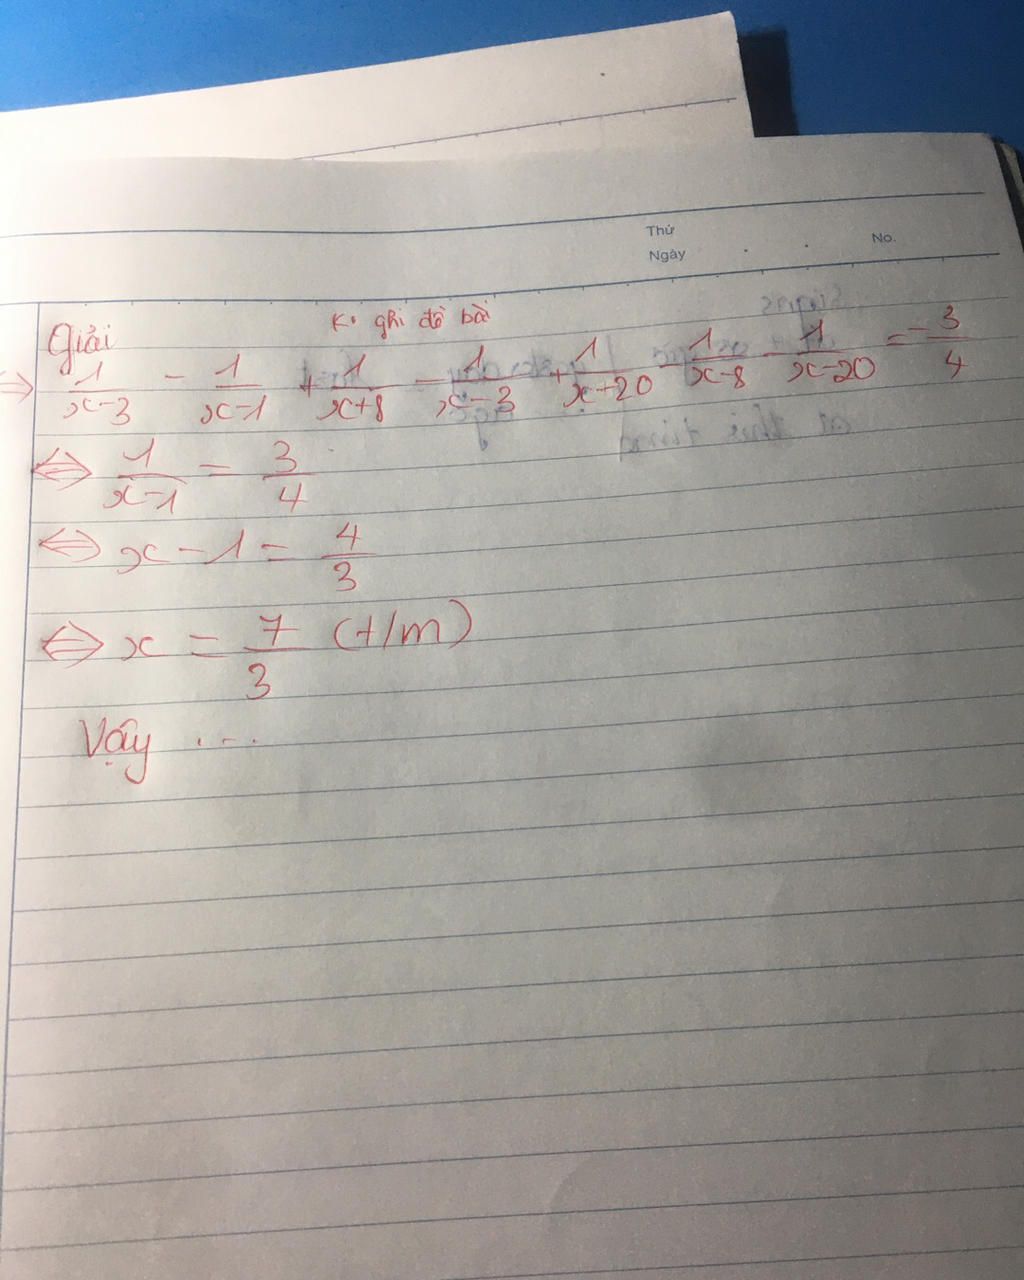 Thứ
Ngày
No.
K° ghi đề bài
Giải
⇒ 1/(x-3) - 1/(x-1) + 1/(x+8) - 1/(x-3) + 1/(x+20) - 1/(x-8) - 1/(x-20) = -3/4
⇔ 1/(x-1) = 3/4
⇔ x - 1 = 4/3
⇔ x = 7/3 (t/m)
Vậy ...